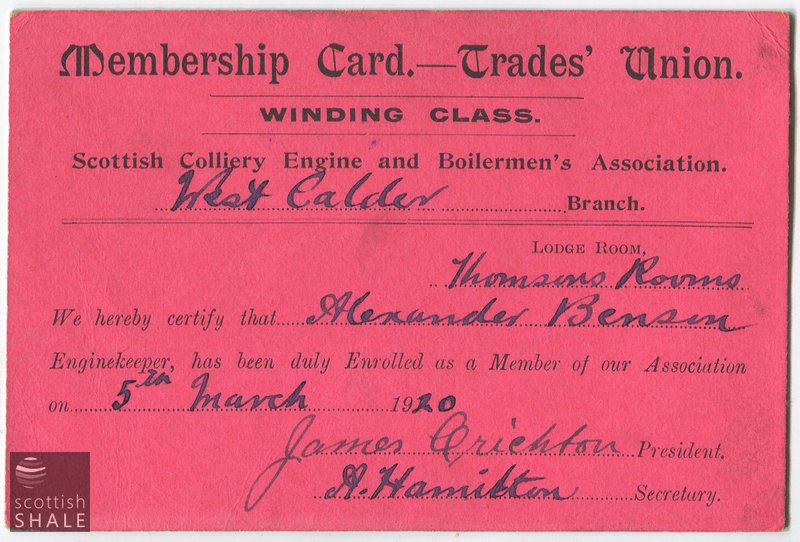 Membership Card.—Trades' Union.
WINDING CLASS.
Scottish Colliery Engine and Boilermen's Association.
West Calder Branch.
LODGE ROOM,
Thomsons Rooms
We hereby certify that Alexander Benson
Enginekeeper, has been duly Enrolled as a Member of our Association
on 5th March 1920
James Crichton President.
A. Hamilton Secretary.
scottish
SHALE